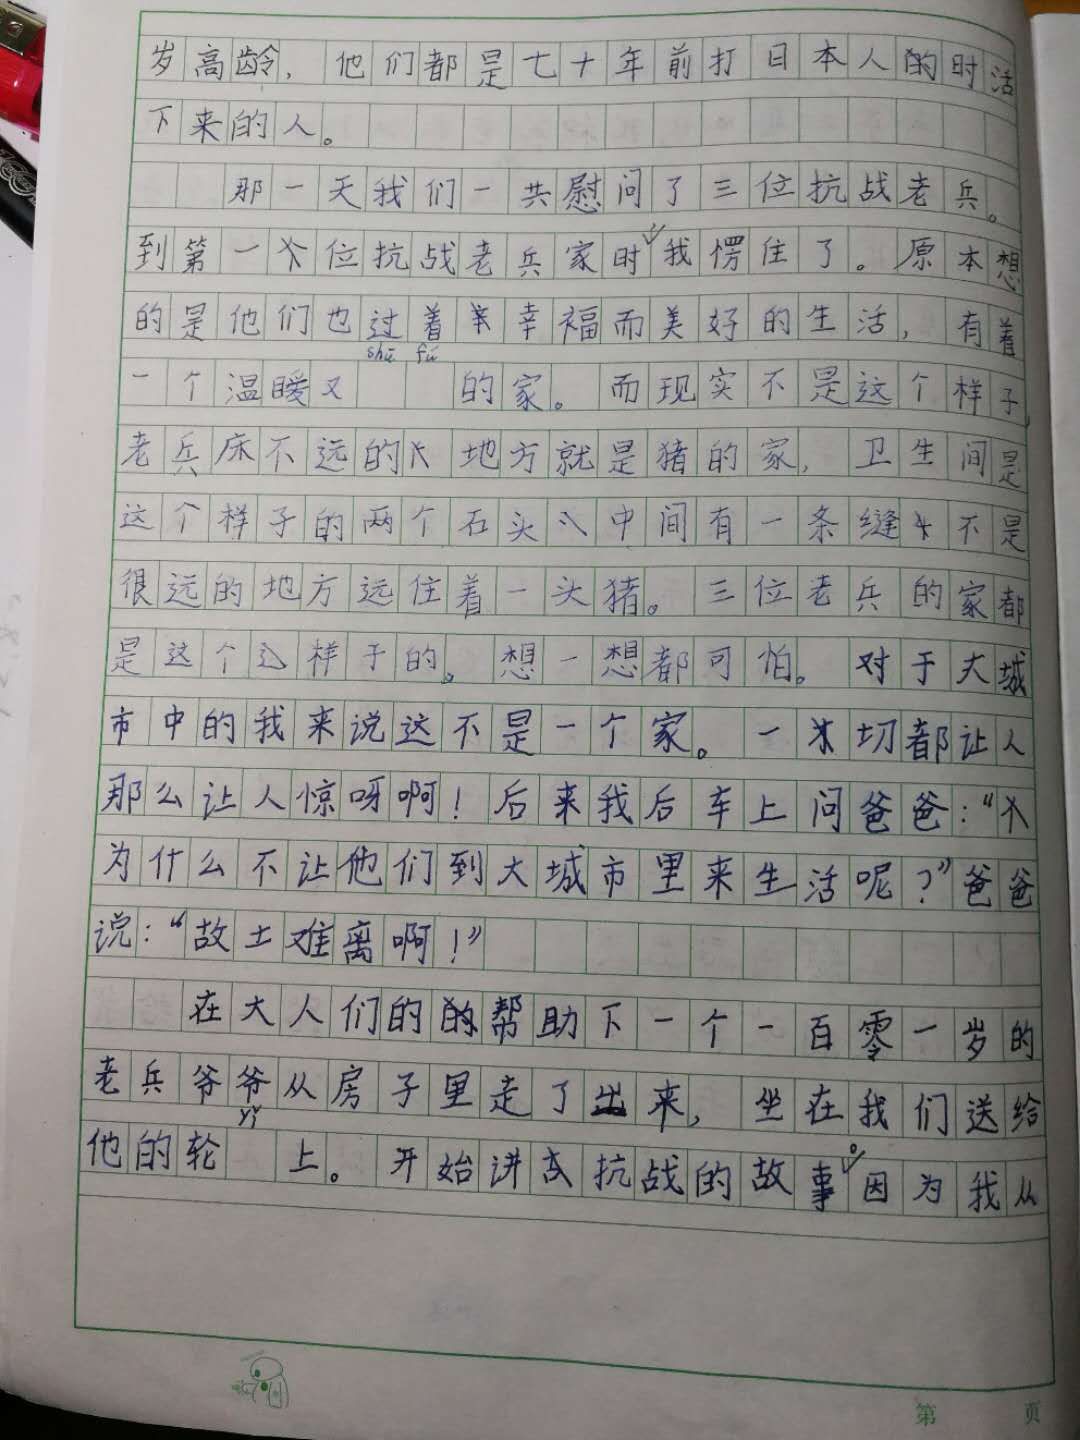 岁高龄，他们都是七十年前打日本人的时活
下来的人。
那一天我们一共慰问了三位抗战老兵。
到第一位抗战老兵家时，我愣住了。原本想
的是他们也过着幸福而美好的生活，有着
shū fú
一个温暖又 的家。而现实不是这个样子，
老兵床不远的地方就是猪的家，卫生间是
这个样子的两个石头中间有一条缝不是
很远的地方远住着一头猪。三位老兵的家都
是这个样子的。想一想都可怕。对于大城
市中的我来说这不是一个家。一切都让人
那么让人惊呀啊！后来我后车上问爸爸：“
为什么不让他们到大城市里来生活呢？”爸爸
说：“故土难离啊！”
在大人们的帮助下一个一百零一岁的
老兵爷爷从房子里走了出来，坐在我们送给
yǐ
他的轮 上。开始讲抗战的故事。因为我从
第 页